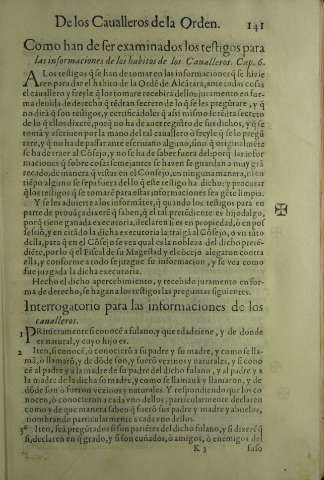 De los Caualleros de la Orden. 141
Como han de ser examinados los testigos para
las informaciones de los habitos de los Caualleros. Cap. 6.
A Los testigos q̃ se han de tomar en las informaciones q̃ se hizie
ren para dar el habito de la Ordẽ de Alcãtara, ante todas cosas
el cauallero y freyle q̃ los tomare recibira dellos juramento en for-
ma deuida de derecho q̃ ternan secreto de lo q̃ se les pregũtare, y q̃
no dirã q̃ son testigos, y certificadoles q̃ assi mismo se ternà secreto
de lo q̃ ellos dixerẽ, porq̃ no ha de auer registro de sus dichos, y q̃ se
tomã y escriuen por la mano del tal cauallero ò freyle q̃ se lo pregũ
tare, y q̃ no ha de passar ante escriuano alguno, sino q̃ originalmẽte
se ha de traer al Cõsejo, y no se ha de saber fuera del: porq̃ las infor
maciones q̃ sobre cosas semejantes se hazen se guardan a muy grã
recado, de manera q̃ vistas en el Consejo, en ninguna manera, ni en
tiẽpo alguno se sepa fuera dello q̃ este testigo ha dicho: y procurar
q̃ los testigos q̃ se tomarẽ para estas informaciones sea gẽte limpia.
Y se les aduierte a los informãtes, q̃ quando los testigos para en
parte de prouãça dixerẽ q̃ saben, q̃ el tal presidente es hijodalgo,
porq̃ tiene ganada executoria, declarenlo es en propiedad, ò en pos
sesiõ, y en razõ de la dicha executoria la traigã al Cõsejo, ò vn trãs
della, para q̃ en el Cõsejo se vea qual es la nobleza del dicho preten
diẽte, por lo q̃ el Fiscal de su Magestad y el cõcejo alegaron contra
ella, y conforme a todo se juzgue su informacion, y se vea como
fue juzgada la dicha executoria.
Hecho el dicho apercibimiento, y recebido juramento en for-
ma de derecho, se hagan a los testigos las preguntas siguientes.
Interrogatorio para las informaciones de los
caualleros.
1 PRimeramente si conocẽ a fulano, y que edad tiene, y de donde
es natural, y cuyo hijo es.
2 Iten, si conocẽ, ò conocierõ a su padre y su madre, y como se lla-
mã, ò llamarõ, y de dõde son, y fuerõ vezinos y naturales, y si cono
cẽ al padre y a la madre de su padre del dicho fulano, y al padre y a
la madre de la dicha su madre, y como se llamauã y llamaron, y de
dõde son ò fueron vezinos y naturales. Y respondiendo que los co
nocen, ò conocieron a cada vno dellos, particularmente declaren
como y de que manera saben q̃ fuerõ sus padre y madre y abuelos,
nombrando particularmente a cada vno dellos.
3 Iten, seã pregũtados si son pariẽtes del dicho fulano, y si dixerẽ q̃
si, declaren en q̃ grado, y si son cuñados, ò amigos, ò enemigos del
K 3 fulo